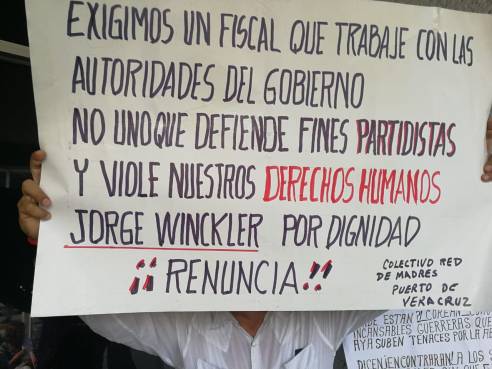 EXIGIMOS UN FISCAL QUE TRABAJE CON LAS
AUTORIDADES DEL GOBIERNO
NO UNO QUE DEFIENDE FINES PARTIDISTAS
Y VIOLE NUESTROS DERECHOS HUMANOS
JORGE WINCKLER POR DIGNIDAD
¡¡ RENUNCIA !!
COLECTIVO RED
DE MADRES
PUERTO DE
VERACRUZ
INCANSABLES GUERRERAS QUE
SUBEN TENACES POR LA
A LOS